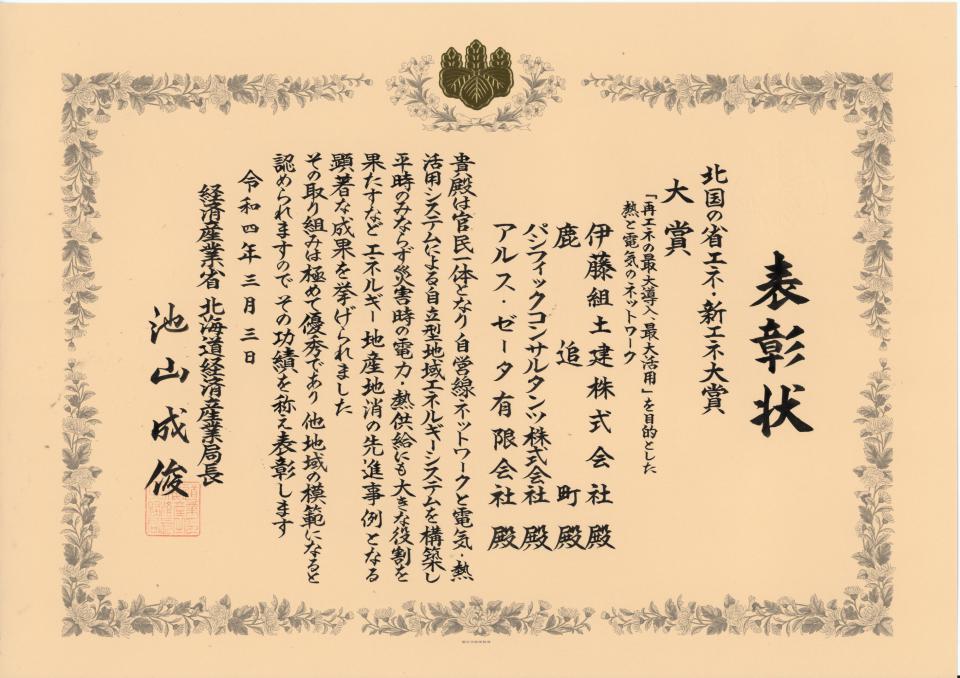 表彰状
北国の省エネ・新エネ大賞
大賞
「再エネの最大導入、最大活用」を目的とした
熱と電気のネットワーク
伊藤組土建株式会社 殿
鹿追町 殿
パシフィックコンサルタンツ株式会社 殿
アルス・ゼータ有限会社 殿
貴殿は官民一体となり自営線ネットワークと電気・熱
活用システムによる自立型地域エネルギーシステムを構築し
平時のみならず災害時の電力・熱供給にも大きな役割を
果たすなど エネルギー地産地消の先進事例となる
顕著な成果を挙げられました
その取り組みは極めて優秀であり 他地域の模範になると
認められますので その功績を称え表彰します
令和四年三月三日
経済産業省 北海道経済産業局長
池山成俊